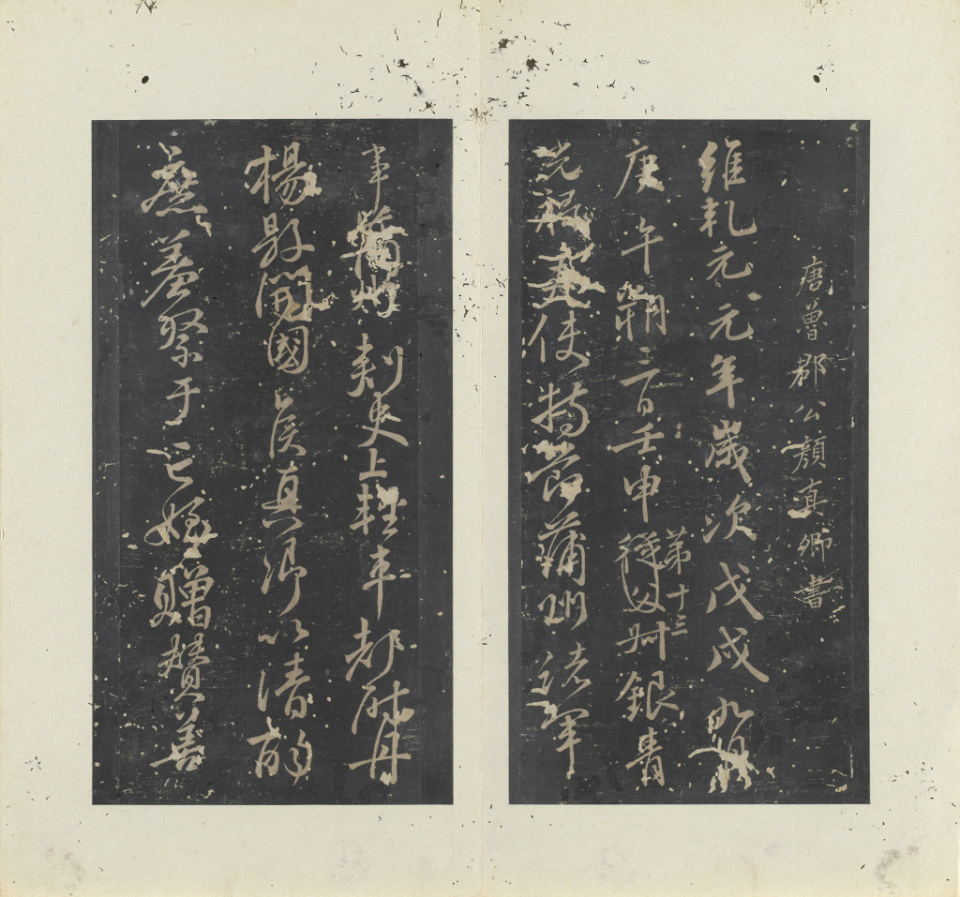 唐魯郡公顏真卿書
維乾元元年歲次戊戌九月
庚午朔三日壬申第十三從父叔銀青
光祿夫使持節蒲州諸軍
事蒲州刺史上輕車都尉丹
楊縣開國侯真卿以清酌
庶羞祭于亡姪贈贊善